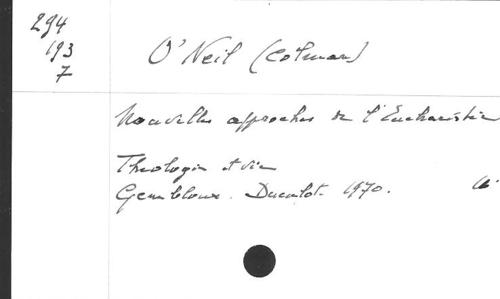 294
193
7
O'Neil (Colman)
Nouvelles approches de l'Eucharistie
Théologie et vie
Gembloux. Duculot. 1970.